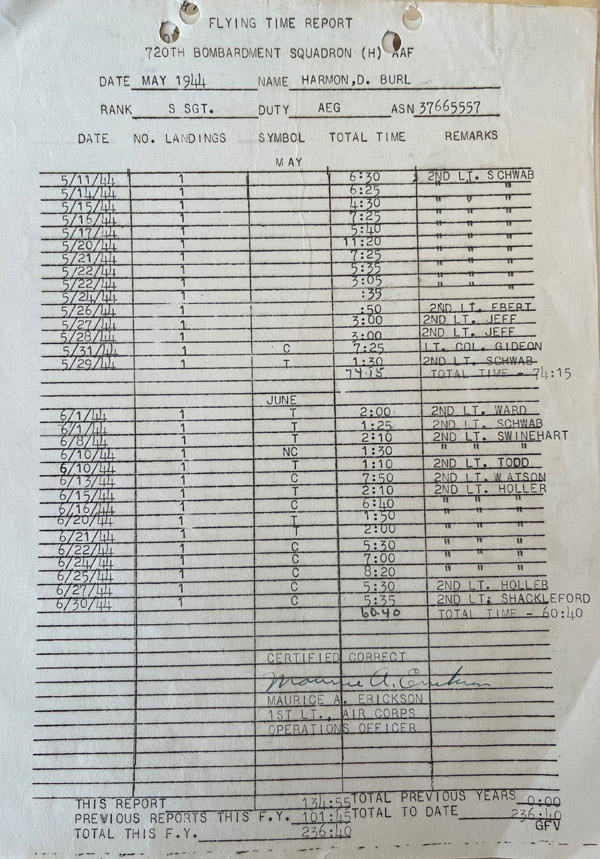 FLYING TIME REPORT
720TH BOMBARDMENT SQUADRON (H) AAF
DATE MAY 1944 NAME HARMON, D. BURL
RANK S SGT. DUTY AEG ASN 37665557
DATE NO. LANDINGS SYMBOL TOTAL TIME REMARKS
MAY
5/11/44 1 6:30 2ND LT. SCHWAB
5/14/44 1 6:25 " " "
5/15/44 1 4:30 " " "
5/16/44 1 7:25 " " "
5/17/44 1 5:40 " " "
5/20/44 1 11:20 " " "
5/21/44 1 7:25 " " "
5/22/44 1 5:35 " " "
5/22/44 1 3:05 " " "
5/24/44 1 :35
5/26/44 1 :50 2ND LT. EBERT
5/27/44 1 3:00 2ND LT. JEFF
5/28/44 1 3:00 2ND LT. JEFF
5/31/44 1 C 7:25 LT. COL. GIDEON
5/29/44 1 T 1:30 2ND LT. SCHWAB
74:15 TOTAL TIME - 74:15
JUNE
6/1/44 1 T 2:00 2ND LT. WARD
6/1/44 1 T 1:25 2ND LT. SCHWAB
6/8/44 1 T 2:10 2ND LT. SWINEHART
6/10/44 1 NC 1:30 " " "
6/10/44 1 T 1:10 2ND LT. TODD
6/13/44 1 C 7:50 2ND LT. WATSON
6/15/44 1 T 2:10 2ND LT. HOLLER
6/16/44 1 C 6:40 " " "
6/20/44 1 T 1:50
6/21/44 1 T 2:00 " " "
6/22/44 1 C 5:30 " " "
6/24/44 1 C 7:00 " " "
6/25/44 1 C 8:20 " " "
6/27/44 1 C 5:30 2ND LT. HOLLEB
6/30/44 1 C 5:35 2ND LT: SHACKLEFORD
60:40 TOTAL TIME - 60:40
CERTIFIED CORRECT
Maurice A. Erickson
MAURICE A. ERICKSON
1ST LT., AIR CORPS
OPERATIONS OFFICER
THIS REPORT 134:55 TOTAL PREVIOUS YEARS 0:00
PREVIOUS REPORTS THIS F.Y. 101:45 TOTAL TO DATE 236:40
TOTAL THIS F.Y. 236:40 GFV